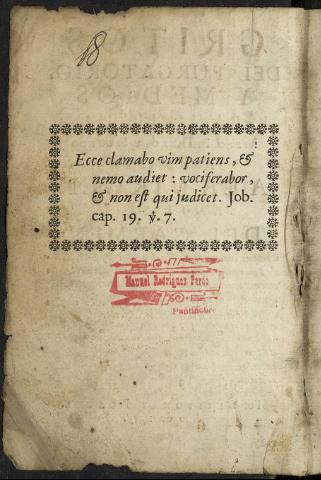 18
Ecce clamabo vim patiens, &
nemo audiet : vociferabor,
& non est qui judicet. Job.
cap. 19. ℣. 7.
Manuel Rodrigues Pardo